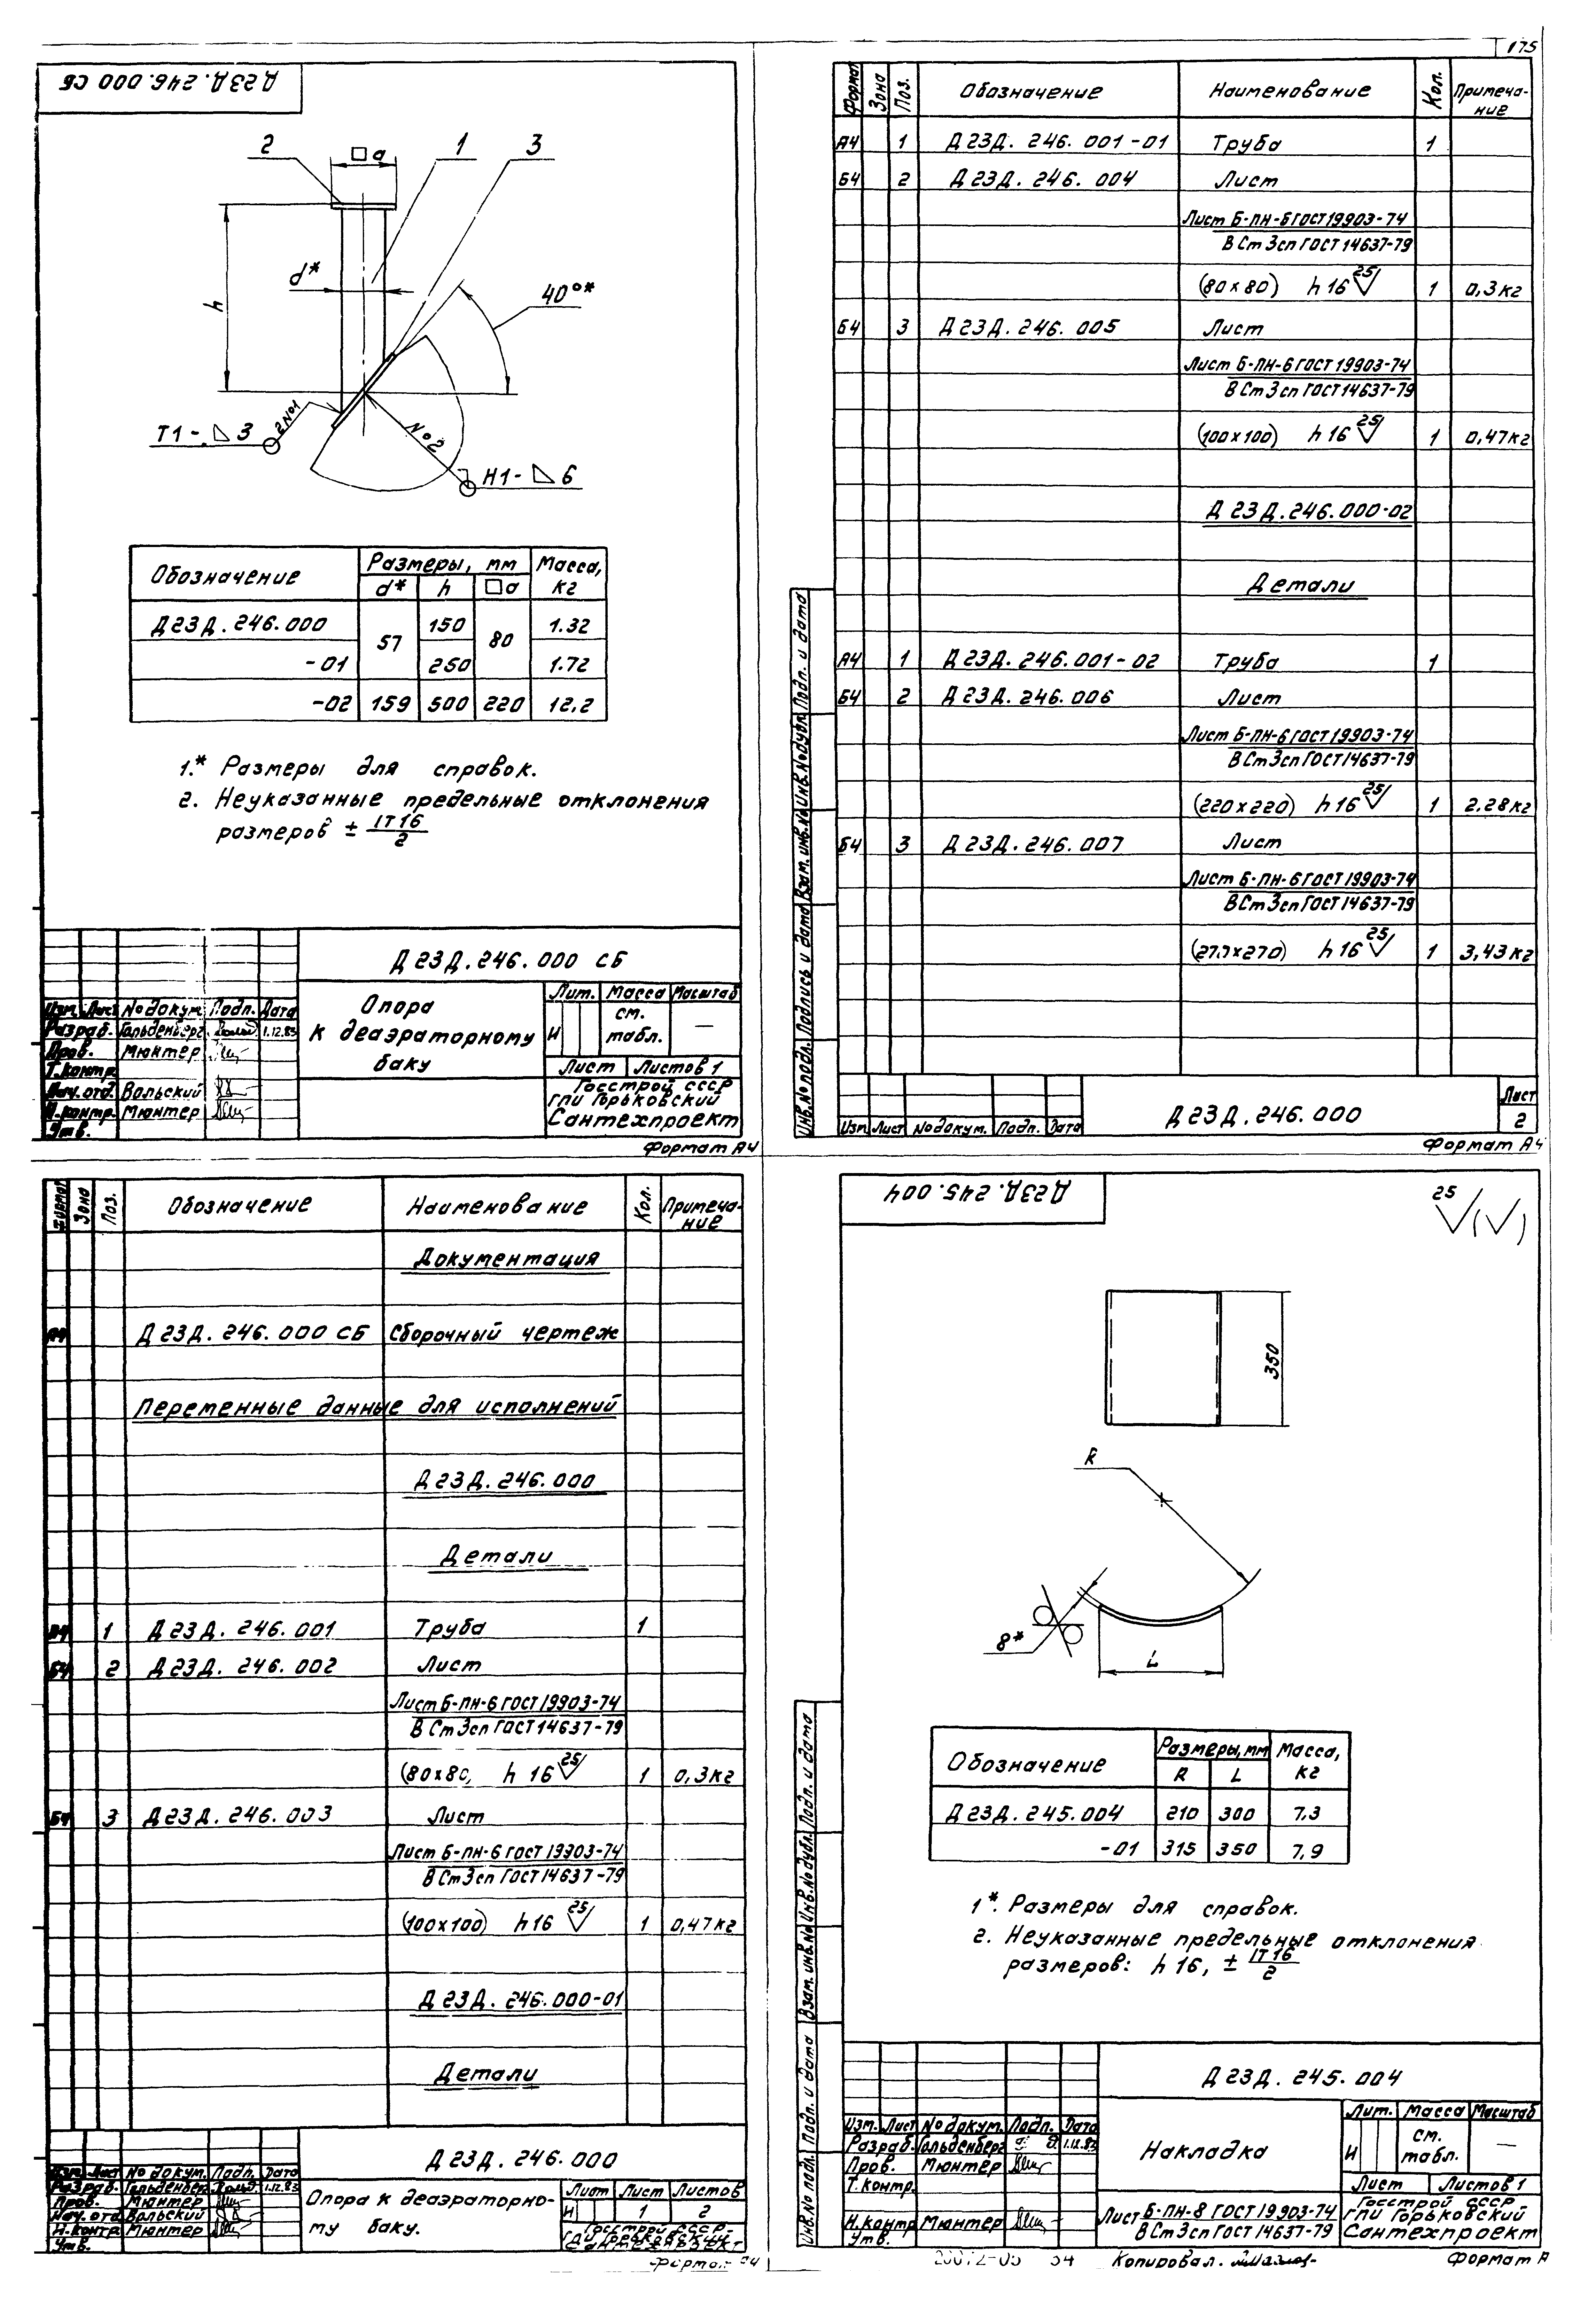 175
Д23Д.246.000 СБ
2
□a
1
3
h
d*
40°*
2№1
Т1-◺3
№2
Н1-◺6
Обозначение
Размеры, мм
Масса, кг
d*
h
□a
Д23Д.246.000
57
150
80
1.32
-01
250
1.72
-02
159
500
220
12,2
1.* Размеры для справок.
2. Неуказанные предельные отклонения
размеров ± IT16/2
Д23Д.246.000 СБ
Изм. Лист № докум. Подп. Дата
Разраб. Гольденберг 1.12.83
Пров. Мюнтер
Т.контр.
Нач.отд. Вольский
Н.контр. Мюнтер
Утв.
Опора
к деаэраторному
баку
Лит. Масса Масштаб
И
см.
табл.
—
Лист Листов 1
Госстрой СССР
ГПИ Горьковский
Сантехпроект
Формат А4
Формат Зона Поз. Обозначение Наименование Кол. Примечание
А4 1 Д23Д.246.001-01 Труба 1
Б4 2 Д23Д.246.004 Лист
Лист Б-ПН-6 ГОСТ 19903-74
В Ст 3сп ГОСТ 14637-79
(80х80) h16 25√ 1 0,3кг
Б4 3 Д23Д.246.005 Лист
Лист Б-ПН-6 ГОСТ 19903-74
В Ст 3сп ГОСТ 14637-79
(100х100) h16 25√ 1 0,47кг
Д23Д.246.000-02
Детали
А4 1 Д23Д.246.001-02 Труба 1
Б4 2 Д23Д.246.006 Лист
Лист Б-ПН-6 ГОСТ 19903-74
В Ст 3сп ГОСТ 14637-79
(220х220) h16 25√ 1 2.28кг
Б4 3 Д23Д.246.007 Лист
Лист Б-ПН-6 ГОСТ 19903-74
В Ст 3сп ГОСТ 14637-79
(270х270) h16 25√ 1 3,43кг
Инв.№ подл. Подпись и дата Взам. инв.№ Инв.№ дубл. Подп. и дата
Изм Лист № докум. Подп. Дата
Д23Д.246.000
Лист
2
Формат А4
Формат Зона Поз. Обозначение Наименование Кол. Примечание
Документация
А4 Д23Д.246.000 СБ Сборочный чертеж
Переменные данные для исполнений
Д23Д.246.000
Детали
А4 1 Д23Д.246.001 Труба 1
Б4 2 Д23Д.246.002 Лист
Лист Б-ПН-6 ГОСТ 19903-74
В Ст 3сп ГОСТ 14637-79
(80х80) h16 25√ 1 0,3кг
Б4 3 Д23Д.246.003 Лист
Лист Б-ПН-6 ГОСТ 19903-74
В Ст 3сп ГОСТ 14637-79
(100х100) h16 25√ 1 0,47кг
Д23Д.246.000-01
Детали
Д23Д.246.000
Изм. Лист № докум. Подп. Дата
Разраб. Гольденберг 1.12.83
Пров. Мюнтер
Нач.отд Вольский
Н.контр. Мюнтер
Утв.
Опора к деаэраторно-
му баку.
Лист Лист Листов
И 1 2
Госстрой СССР
ГПИ Горьковский
Сантехпроект
Формат А4
Д23Д.245.004
25√(√)
350
R
8*
L
Обозначение
Размеры, мм
Масса, кг
R
L
Д23Д.245.004
210
300
7,3
-01
315
350
7,9
1*. Размеры для справок.
2. Неуказанные предельные отклонения
размеров: h16, ± IT16/2
Инв.№ подл. Подп. и дата Взам. инв.№ Инв.№ дубл. Подп. и дата
Д23Д.245.004
Изм. Лист № докум. Подп. Дата
Разраб. Гольденберг 1.12.83
Пров. Мюнтер
Т.контр.
Н.контр Мюнтер
Утв.
Накладка
Лит. Масса Масштаб
И
см.
табл.
—
Лист Листов 1
Лист Б-ПН-8 ГОСТ 19903-74
В Ст 3сп ГОСТ 14637-79
Госстрой СССР
ГПИ Горьковский
Сантехпроект
Копировал.
Формат А